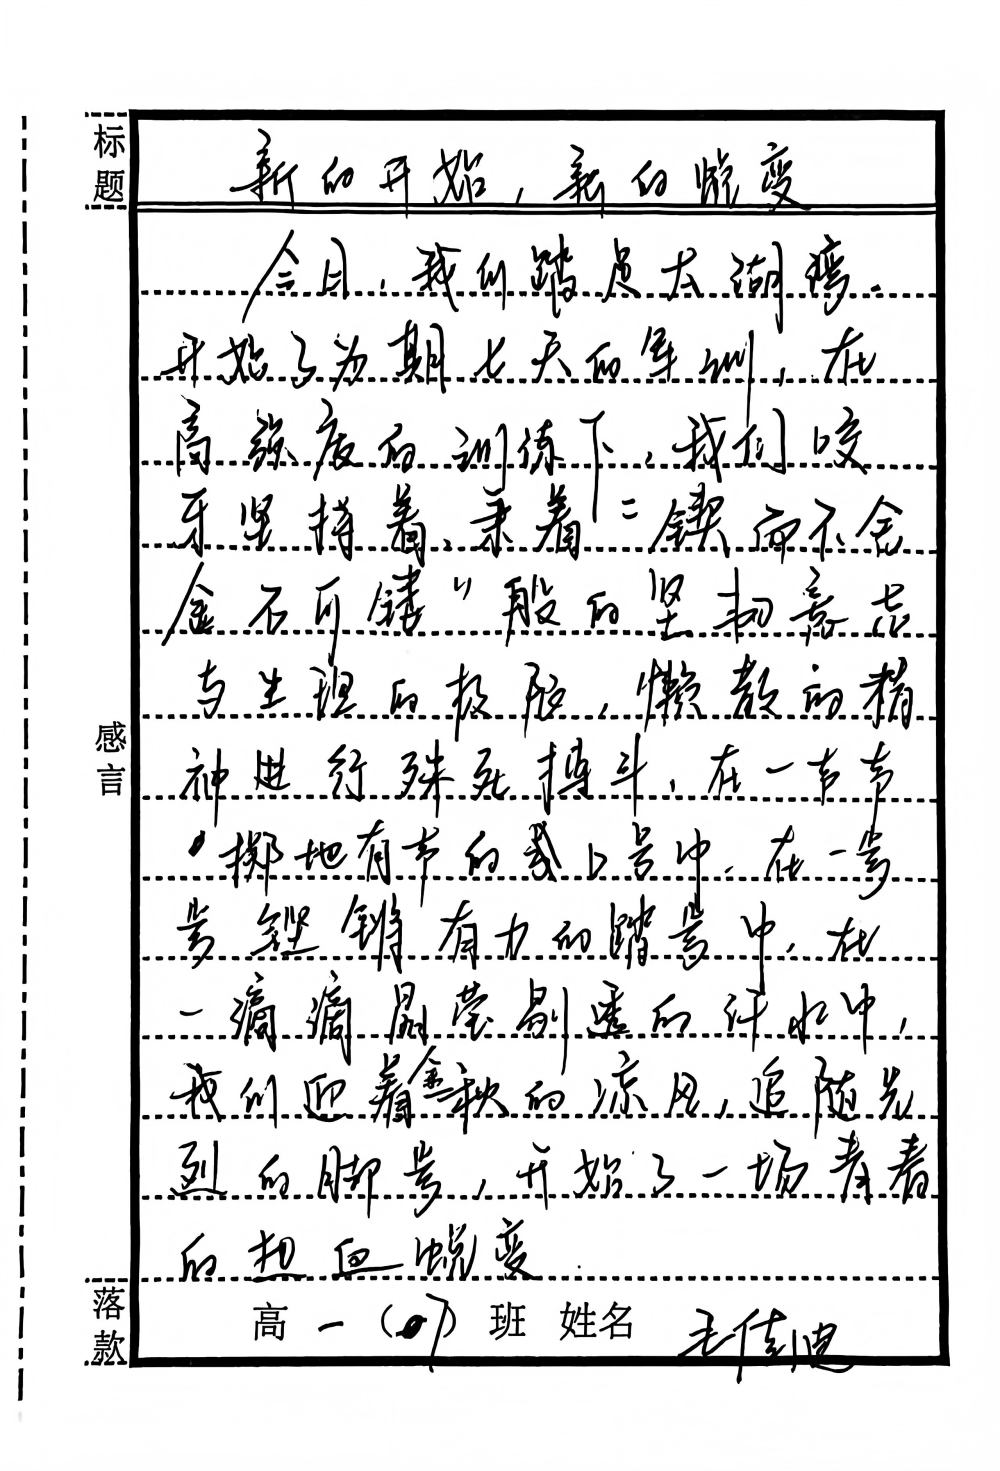 标题
新的开始，新的蜕变
今日，我们踏足太湖湾.
开始了为期七天的军训，在
高强度的训练下，我们咬
牙坚持着、秉着“锲而不舍
金石可镂”般的坚韧意志
与生理的极限，懒散的精
神进行殊死搏斗，在一声声
掷地有声的口号中，在一步
步铿锵有力的踏步中，在
一滴滴晶莹剔透的汗水中，
我们迎着金秋的凉风，追随先
烈的脚步，开始了一场青春
的热血蜕变.
感言
落款
高一（07）班 姓名 毛佳迪